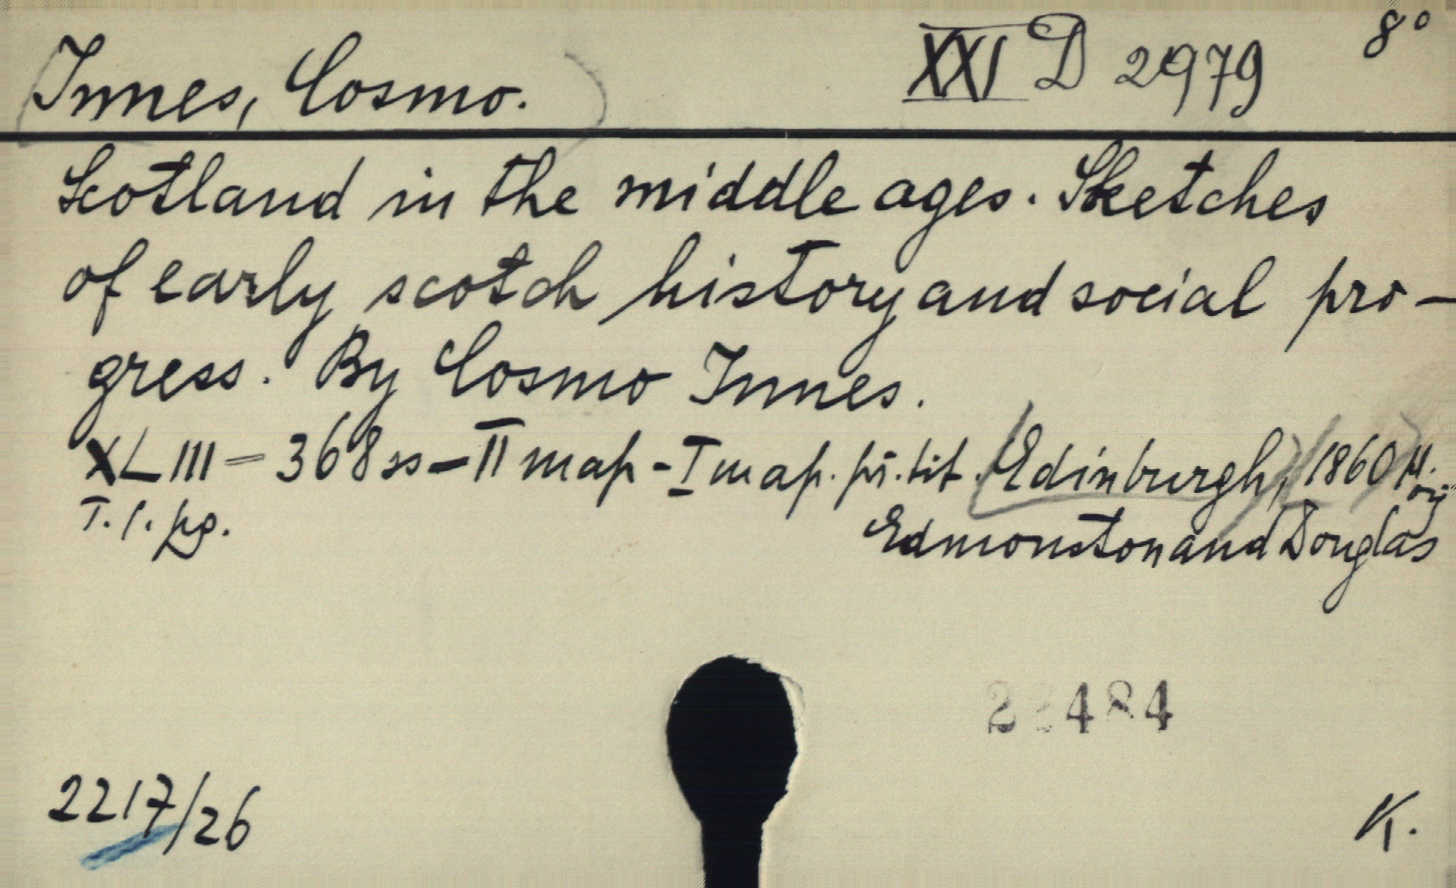 Innes, Cosmo. XXI D 2979 8°
Scotland in the middle ages. Sketches
of early scotch history and social pro-
gress. By Cosmo Innes.
XLIII - 368 ss - II map - I map. pr. tit. Edinburgh, 1860
T. 1. pg. Edmonston and Douglas
484
2217/26 K.